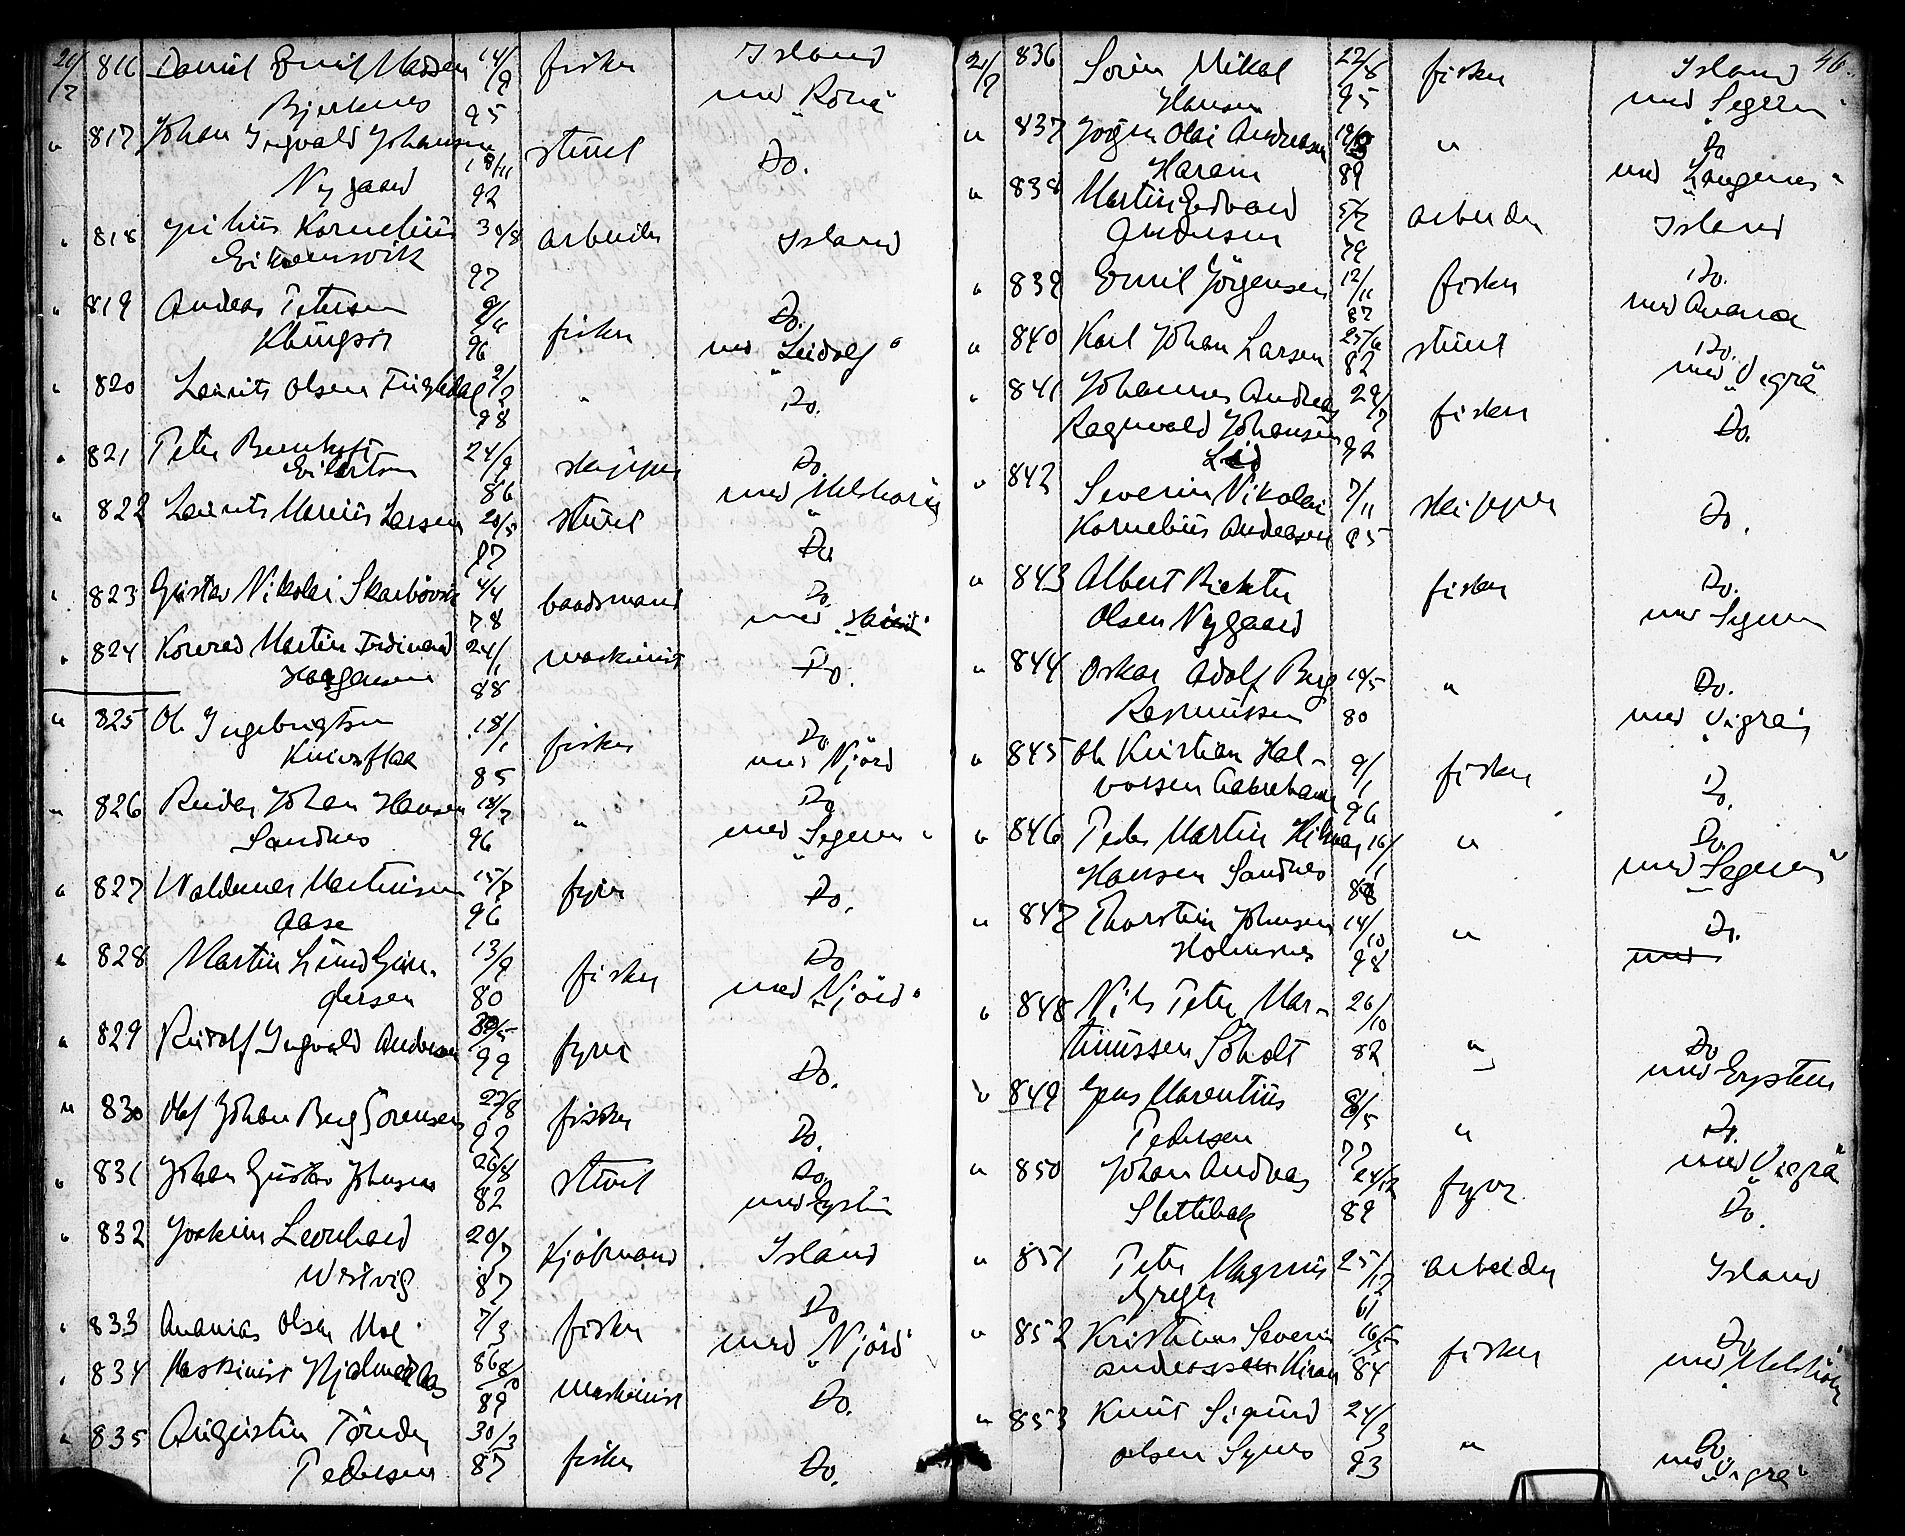 21/7 816 Daniel Emil Madsen 14/9 fisker Island
Bjerknes 95 med Rona
" 817 Johan Ingvald Johansen 18/11 stuert Do.
Nygaard 92
" 818 Kornelius 30/8 arbeider Island
97
" 819 Andreas Petersen 9/11 fisker Do.
Klungsør 96 med "Leidolf"
" 820 Laurits Olsen 2/2 " Do.
98
" 821 Peter Bernhoft 24/9 skipper Do.
Eilertsen 86 med "
" 822 Laurits Marius Larsen 20/5 stuert Do.
87
" 823 Gustav Nikolai Skarbøvik 4/4 baadsmand Do.
78 med
" 824 Konrad Martin Ferdinand 24/1 maskinist Do.
Haagensen 88
" 825 Ole Ingebrigtsen 18/1 fisker Do.
Knivsflaa 85 med Njörd
" 826 Reidar Johan Hansen 18/7 " Do.
Sandnes 96 med "Segeren"
" 827 Waldemar Martinsen 15/7 fyrb Do.
Aase 96
" 828 Martin Lund Gun- 13/9 fisker Do.
dersen 80 med "Njörd"
" 829 Rudolf Ingvald Andersen 30/5 fyrb Do.
99
" 830 Olaf Johan Berg Sørensen 22/8 fisker Do.
92
" 831 Johan Gustav Johnsen 26/8 stuert Do.
82 med Eystein
" 832 Joakim Leonhard 20/7 Kjølmand Island
Westvig 87
" 833 Ananias Olsen Moe 7/3 fisker Do.
86 med "Njörd"
" 834 Maskinist Hjalmar 8/8 maskinist Do.
89
" 835 Augustin Tönder 30/3 fisker Do.
Pedersen 87
46.
21/7 836 Sorin Mikal 22/8 fisker Island
Hansen 95 med Segeren"
" 837 Jørgen Olai Andreasen 19/8 " Do
Haram 89 med "Langenes"
" 838 Martin Edvard 5/7 arbeider Island
Andersen 79
" 839 Emil Jörgensen 12/11 fisker Do.
87 med
" 840 Karl Johan Larsen 25/6 stuert Do.
82 med "Vigra"
" 841 Johannes Andreas 29/7 fisker Do.
Ragnvald Johansen 92
Lid
" 842 Severin Nikolai 7/11 skipper Do.
Kornelius Andreasen 85
" 843 Albert Rickter fisker Do.
Olsen Nygaard med Segeren
" 844 Oskar Adolf Berg 18/5 " Do.
Rasmussen 80 med "Vigra"
" 845 Ole Kristian Hal- 9/1 fisker Do.
vorsen 96
" 846 Peder Martin Hilmar 16/1 " Do.
Hansen Sandnes 88 med "Segeren"
" 847 Thorstein Johnsen 14/10 " Do.
Holmsnes 98 med
" 848 Nils Peter Mar- 26/10
tinussen Söholt 82 " Do
med Eystein
" 849 Jens Marentius 8/5
Pedersen 77 " Do.
med "Vigra"
" 850 Johan Andreas 24/12 fyrb. Do.
Slettebak 89
" 851 Peter Magnus 25/12 arbeider Island
61
" 852 Kristian Severin 16/5 fisker Do.
84 med
" 853 Knut Sigurd 24/3 " Do.
Olsen Synes 93 med "Vigra"